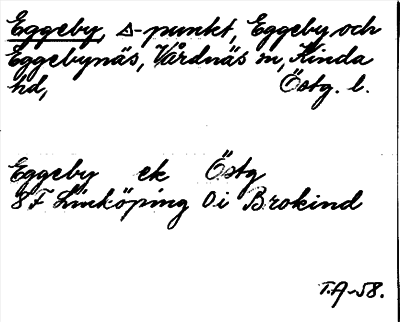 Eggeby, △-punkt, Eggeby och
Eggebynäs, Vårdnäs sn, Kinda
hd, Östg. l.
Eggeby ek Östg
8F Linköping Öi Brokind
T.A-58.